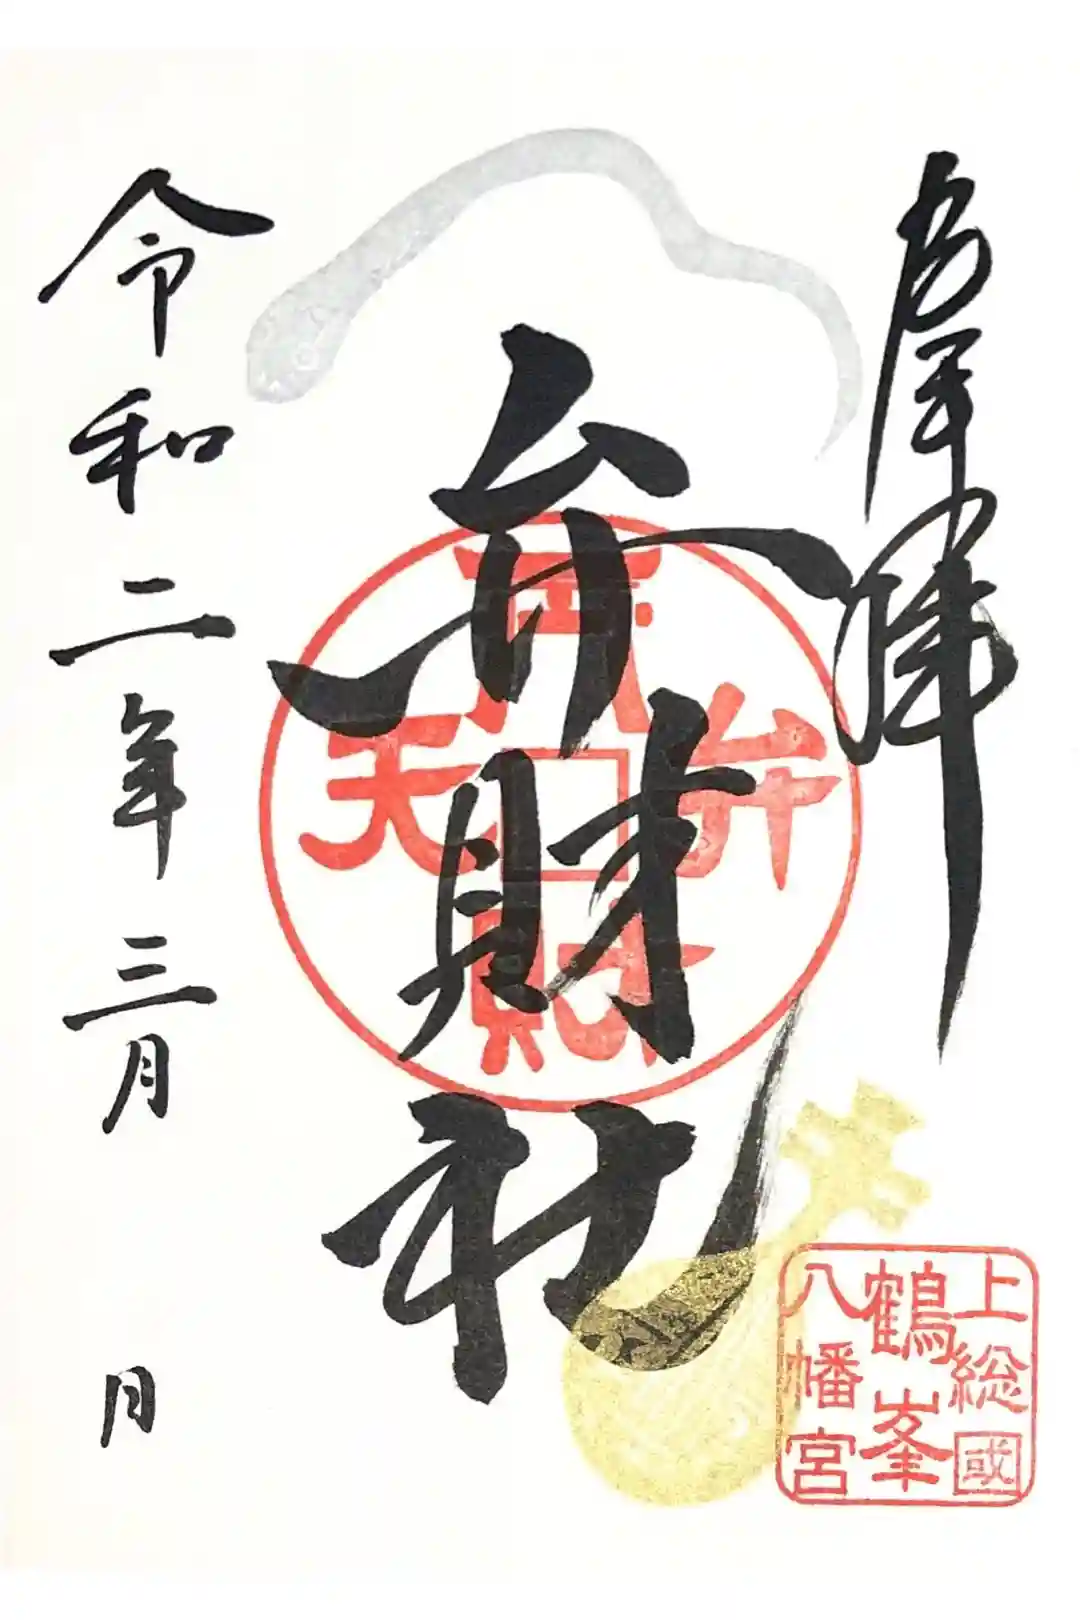 奉拝
弁財社
弁財天
上総國
鶴峯
八幡宮
令和二年三月 日